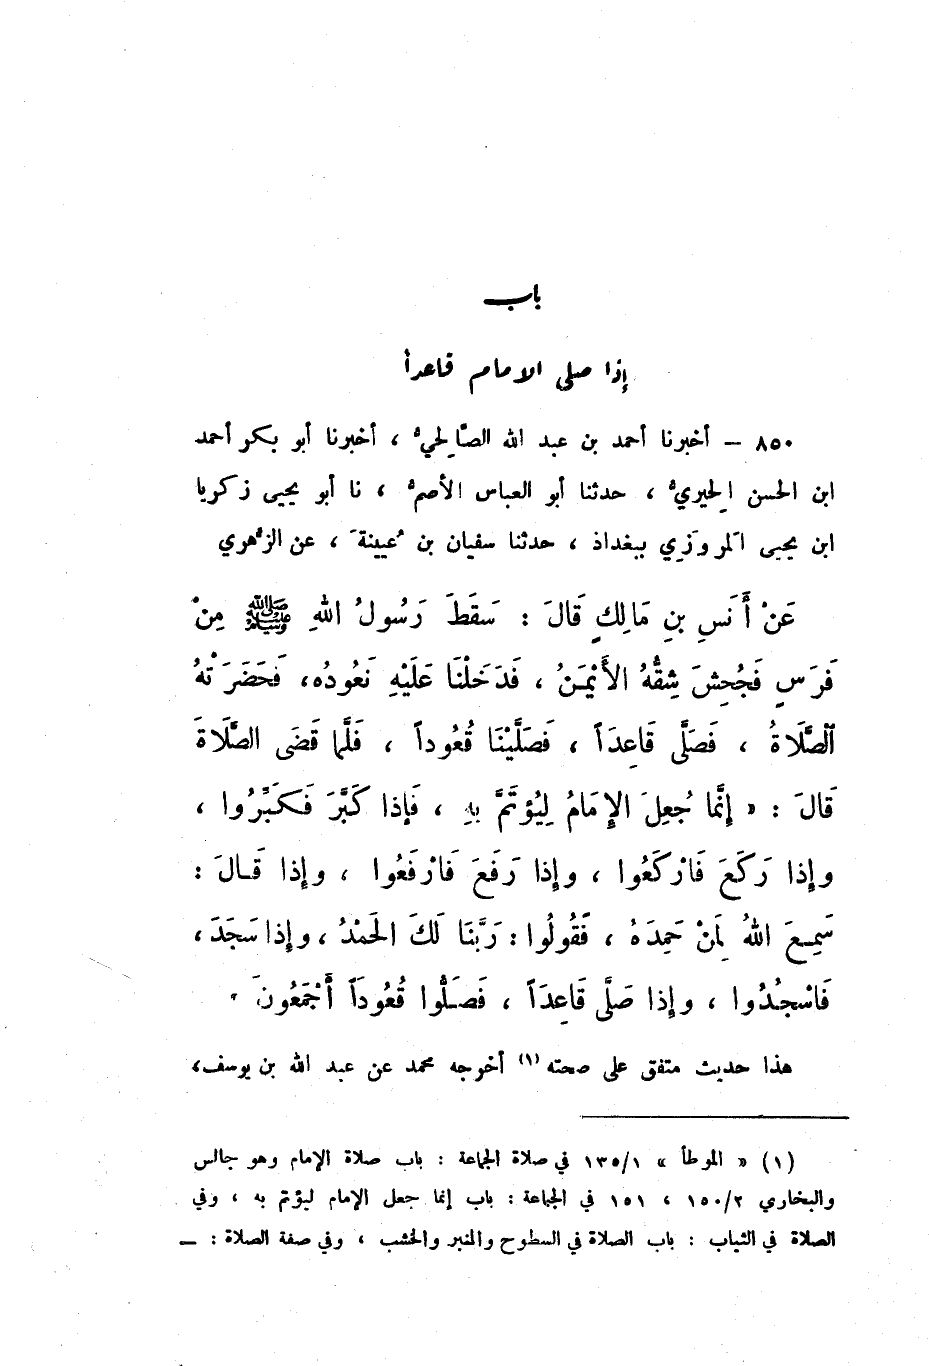 باب
إذا صلى الامام قاعداً
٨٥٠ – أخبرنا أحمد بن عبد الله الصّالحيُّ ، أخبرنا أبو بكر أحمد
ابن الحسن الحِيريُّ ، حدثنا أبو العباس الأصمُّ ، نا أبو يحيى زكريا
ابن يحيى المروَزِي ببغداذ ، حدثنا سفيان بن عُيينةَ ، عن الزُّهري
عَنْ أَنَسِ بنِ مَالِكٍ قَالَ : سَقَطَ رَسُولُ اللهِ ﷺ مِنْ
فَرَسٍ فَجُحِشَ شِقُّهُ الأَيْمَنُ ، فَدَخَلْنَا عَلَيْهِ نَعُودُه، فَحَضَرَتْهُ
الصَّلَاةُ ، فَصَلَّى قَاعِدَاً ، فَصَلَّيْنَا قُعُوداً ، فَلَمَّا قَضَى الصَّلَاةَ
قَالَ : « إِنَّمَا جُعِلَ الإِمَامُ لِيُؤتَمَّ بِهِ ، فَإذا كَبَّرَ فَكَبِّرُوا ،
وإِذا رَكَعَ فَارْكَعُوا ، وإِذا رَفَعَ فَارْفَعُوا ، وإِذا قَالَ :
سَمِعَ اللهُ لِمَنْ حَمِدَهُ ، فَقُولُوا : رَبَّنَا لَكَ الحَمْدُ ، وإِذا سَجَدَ ،
فَاسْجُدُوا ، وإِذا صَلَّى قَاعِدَاً ، فَصَلُّوا قُعُودَاً أَجْمَعُونَ »
هذا حديث متفق على صحته (١) أخرجه محمد عن عبد الله بن يوسف،
(١) « الموطأ » ١٣٥/١ في صلاة الجماعة : باب صلاة الإمام وهو جالس
والبخاري ١٥٠/٢ ، ١٥١ في الجماعة : باب إنما جعل الإمام ليؤتم به ، وفي
الصلاة في الثياب : باب الصلاة في السطوح والمنبر والخشب ، وفي صفة الصلاة : –